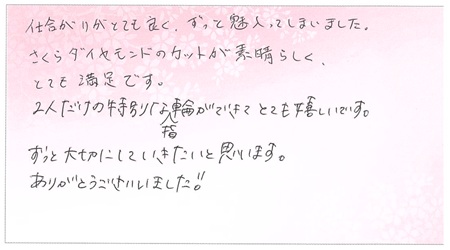 仕合がりがとても良く、ずっと魅入ってしまいました。
さくらダイヤモンドのカットが素晴らしく、
とても満足です。
2人だけの特別な指輪ができてとても嬉しいです。
ずっと大切にしていきたいと思います。
ありがとうございました!!